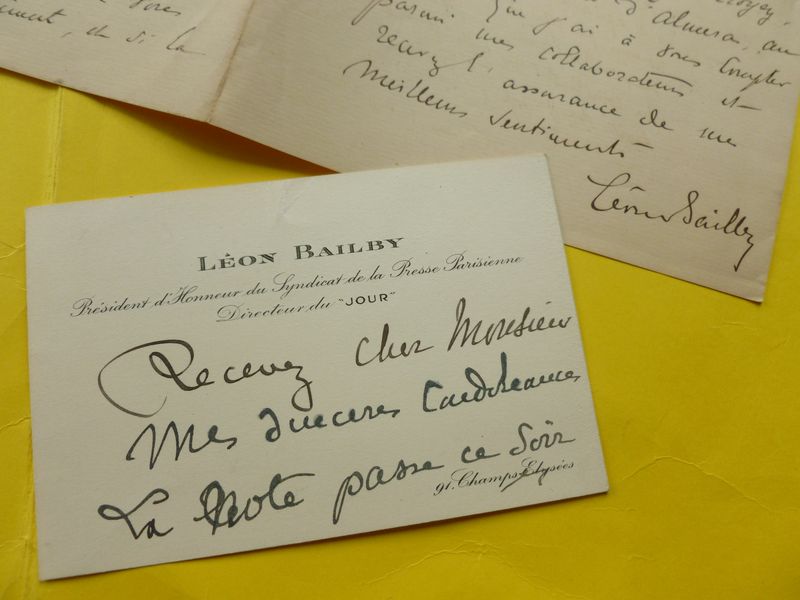 vous
, de si la
d'Almera, au
que j'ai à vous compter
parmi mes collaborateurs et
recevez l'assurance de mes
meilleurs sentiments
Léon Bailby
LÉON BAILBY
Président d'Honneur du Syndicat de la Presse Parisienne
Directeur du "JOUR"
Recevez cher Monsieur
Mes sinceres Condoleances
La Note passe ce Soir
91. Champs-Elysées